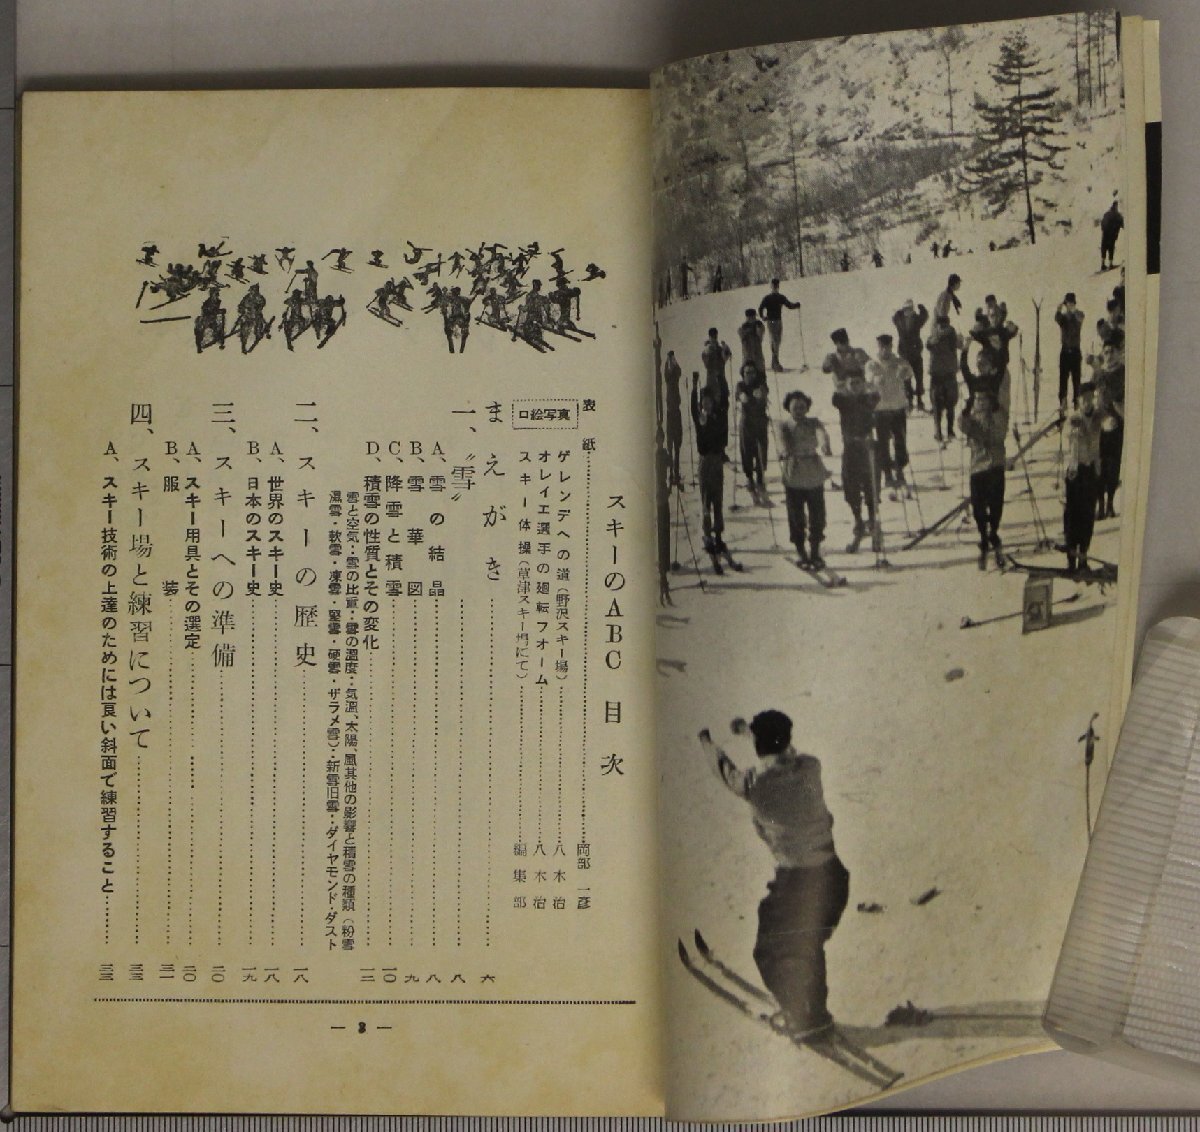 スキーのABC 目次
表紙……岡部一彦
口絵写真
ゲレンデへの道(野沢スキー場)……八木治
オレイエ選手の廻転フオーム……八木治
スキー体操(草津スキー場にて)……編集部
まえがき……六
一、〝雪〟……八
A、雪の結晶……八
B、雪華図……九
C、降雪と積雪……一〇
D、積雪の性質とその変化……一二
雪と空気・雪の比重・雪の温度・気温、太陽、風其他の影響と積雪の種類(粉雪
濕雪・軟雪・凍雪・堅雪・硬雪・ザラメ雪)・新雪旧雪・ダイヤモンド・ダスト
二、スキーの歴史……一八
A、世界のスキー史……一八
B、日本のスキー史……一九
三、スキーへの準備……二〇
A、スキー用具とその選定……二〇
B、服装……三一
四、スキー場と練習について……三三
A、スキー技術の上達のためには良い斜面で練習すること……三三
— 3 —